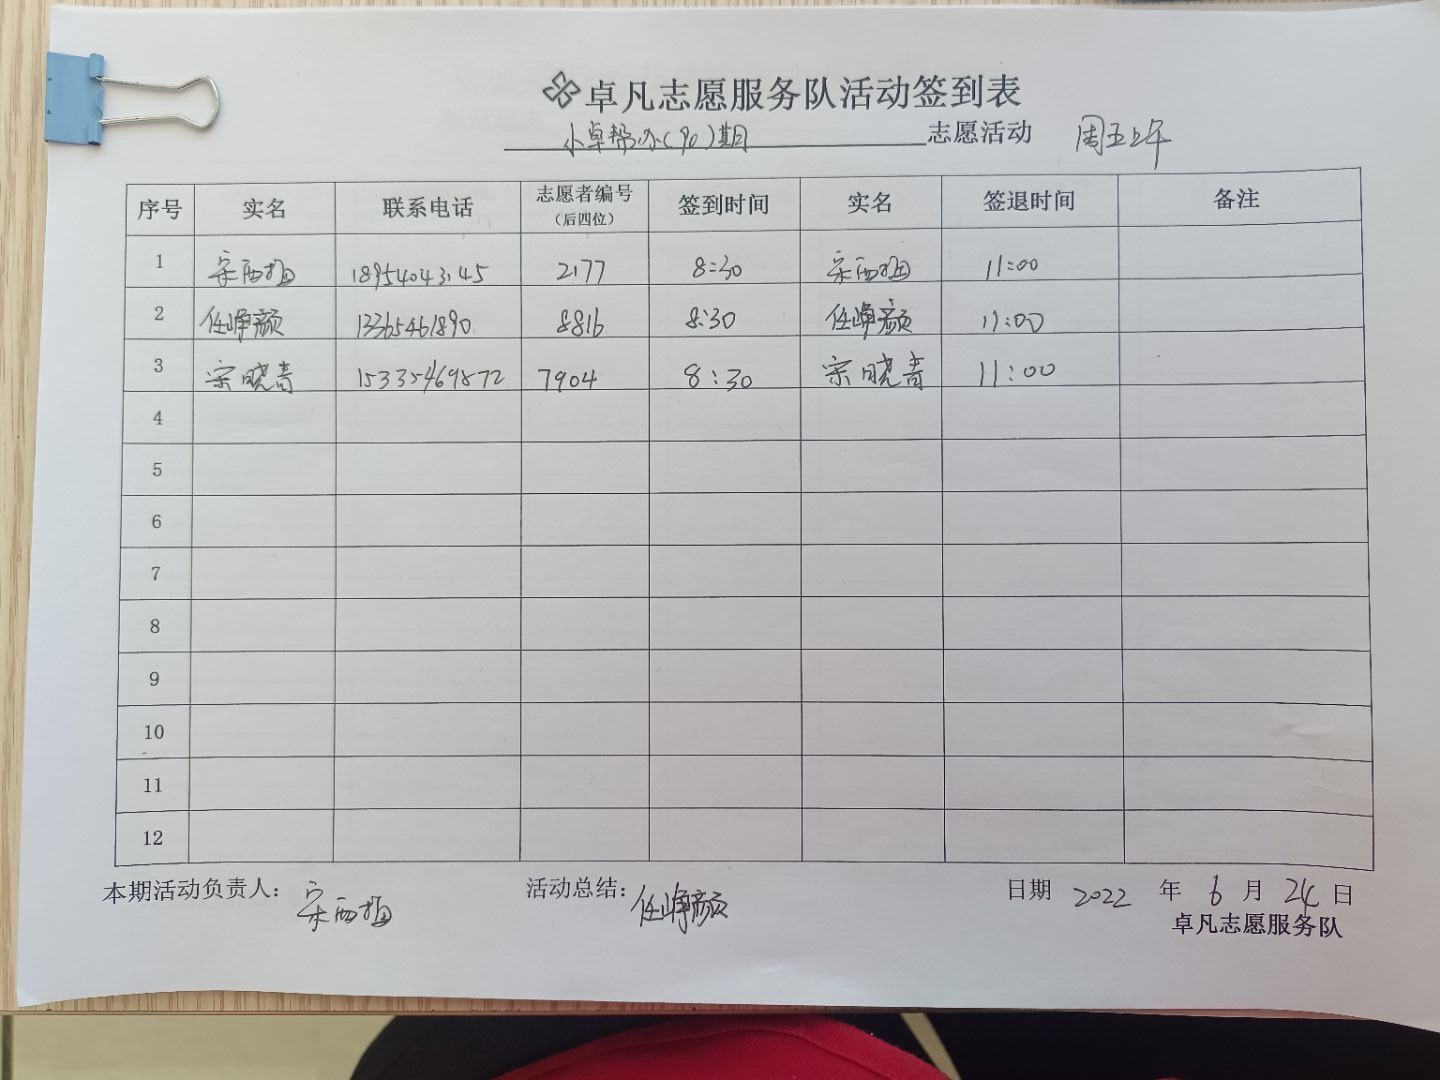 卓凡志愿服务队活动签到表
小卓帮办(90)期 志愿活动 周五上午
序号 实名 联系电话 志愿者编号（后四位） 签到时间 实名 签退时间 备注
1 宋西 18954043145 2177 8:30 宋西 11:00
2 任峥颜 13365461890 8816 8:30 任峥颜 11:00
3 宋晓青 15335469872 7904 8:30 宋晓青 11:00
4
5
6
7
8
9
10
11
12
本期活动负责人： 宋西 活动总结： 任峥颜 日期 2022 年 6 月 24 日
卓凡志愿服务队